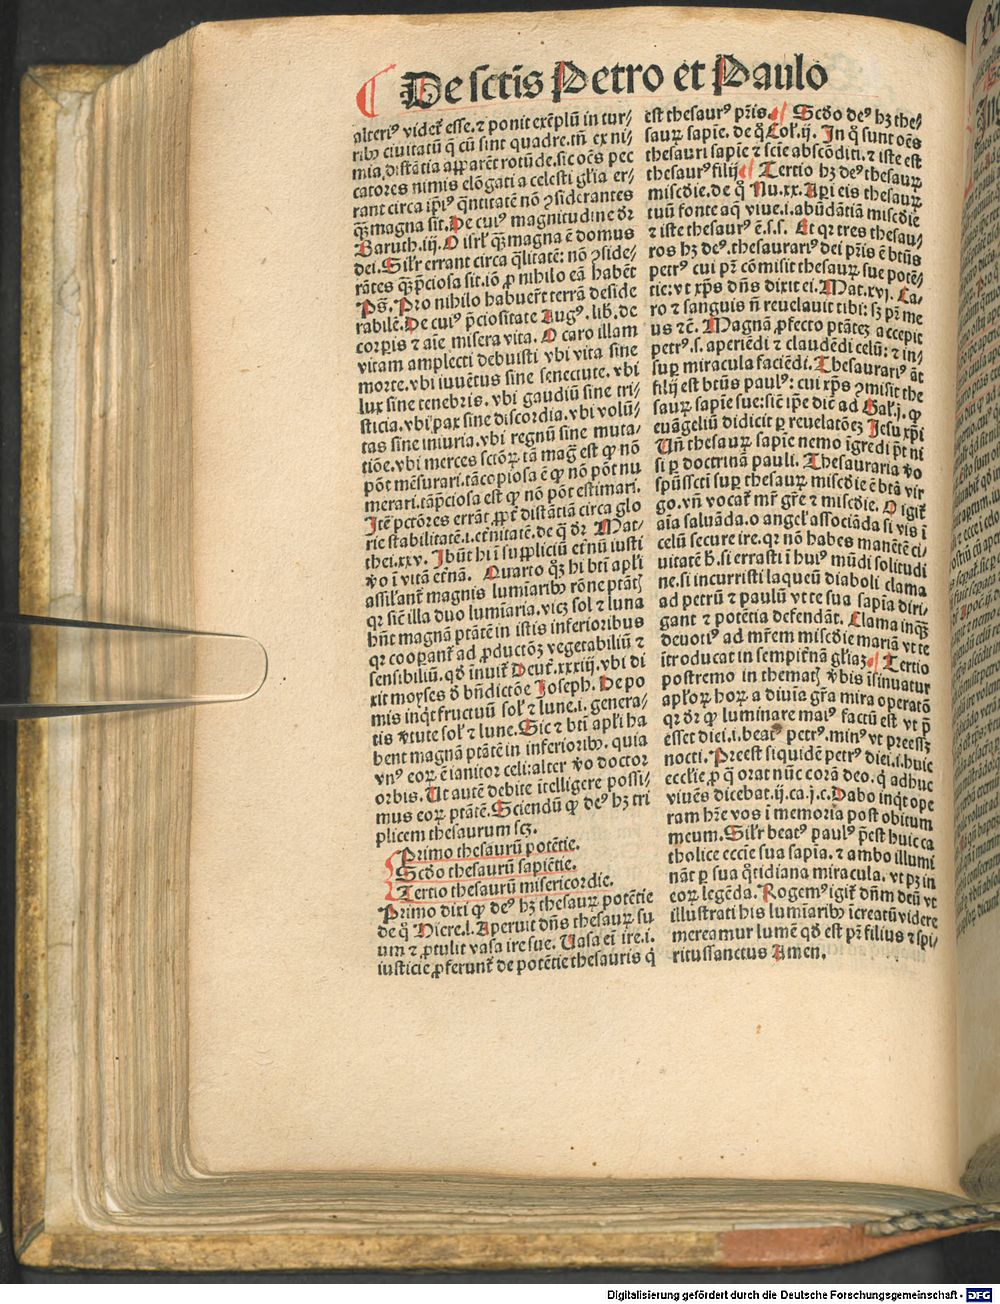 De sctis Petro et Paulo
alteriꝰ videt̃ esse. ⁊ ponit exẽplũ in tur-
ribꝰ ciuitatũ q̃ cũ sint quadre. tñ ex ni-
mia distãtia apparẽt rotũde. sic oẽs pec
catores nimis elõgati a celesti gl̃ia er-
rant circa ip̃iꝰ q̃ntitatẽ nõ ꝯsiderantes
qꝫ magna sit. De cuiꝰ magnitudine dr̃
Baruth. iij. O isrl̃ qꝫ magna ẽ domus
dei. Sil̃r errant circa q̃litatẽ: nõ ꝯside-
rãtes qꝫ p̃ciosa sit. iõ ꝓ nihilo eã habẽt
Ps̃. Pro nihilo habuer̃t terrã deside
rabilẽ. De cuiꝰ p̃ciositate Augꝰ. lib̃. de
corpis ⁊ aĩe misera vita. O caro illam
vitam amplecti debuisti vbi vita sine
morte. vbi iuuẽtus sine senectute. vbi
lux sine tenebris. vbi gaudiũ sine tri-
sticia. vbi pax sine discordia. vbi volũ-
tas sine iniuria. vbi regnũ sine muta-
tiõe. vbi merces sctõꝝ tã mag̃ est ꝙ nõ
põt mẽsurari. tã copiosa ẽ ꝙ nõ põt nu
merari. tã p̃ciosa est ꝙ nõ põt estimari.
Itẽ pctõres errãt ꝓpt̃ distãtiã circa glo
rie stabilitatẽ. i. et̃nitatẽ. de q̃ dr̃ Mat-
thei. xxv. Ibũt hi ĩ suppliciũ et̃nũ iusti
ṽo ĩ vitã et̃nã. Quarto qꝫ hi bt̃i apl̃i
assil̃ant̃ magnis lumĩaribꝰ rõne ptãtꝫ
qꝛ sic̃ illa duo lumĩaria. vicꝫ sol ⁊ luna
hñt magnã ptãtẽ in istis inferioribus
qꝛ coopant̃ ad ꝓductõꝫ vegetabiliũ ⁊
sensibiliũ. qd̃ ĩnuit̃ Deut̃. xxxiij. vbi di
xit moyses d̃ bñdictõe Ioseph. De po
mis inqt̃ fructuũ sol̃ ⁊ lune. i. genera-
tis ṽtute sol̃ ⁊ lune. Sic ⁊ bt̃i apl̃i ha
bent magnã ptãtẽ in inferioribꝰ. quia
vnꝰ eoꝝ ẽ ianitor celi: alter ṽo doctor
orbis. Ut autẽ debite ĩtelligere possi-
mus eoꝝ ptãtẽ. Sciendũ ꝙ deꝰ hꝫ tri
plicem thesaurum scꝫ.
Primo thesaurũ potẽtie.
Scd̃o thesaurũ sapiẽtie.
Tertio thesaurũ misericordie.
Primo dixi ꝙ deꝰ hꝫ thesauꝝ potẽtie
de q̃ Hiere. l. Aperuit dñs thesauꝝ su
um ⁊ ꝓtulit vasa ire sue. Vasa eĩ ire. i.
iusticie ꝓferunt̃ de potẽtie thesauris q̃
est thesaurꝰ pr̃is. Scd̃o deꝰ hꝫ the-
sauꝝ sapie. de q̃ Col̃. ij. In q̃ sunt oẽs
thesauri sapĩe ⁊ scĩe abscõditi. ⁊ iste est
thesaurꝰ filij. Tertio hꝫ deꝰ thesauꝝ
misc̃die. de q̃ Nu. xx. Apĩ eis thesauꝝ
tuũ fonte aq̃ viue. i. abũdãtiã misc̃die
⁊ iste thesaurꝰ ẽ. s. s. Et qꝛ tres thesau-
ros hꝫ deꝰ. thesaurariꝰ dei pr̃is ẽ bt̃us
petrꝰ cui pr̃ cõmisit thesauꝝ sue potẽ-
tie: vt xp̃s dñs dixit ei. Mat. xvj. Ca-
ro ⁊ sanguis ñ reuelauit tibi: sꝫ pr̃ me
us ⁊c̃. Magnã ꝓfecto ptãtẽꝫ accepit
petrꝰ. s. aperiẽdi ⁊ claudẽdi celũ: ⁊ in-
suꝑ miracula faciẽdi. Thesaurariꝰ ãt
filij est bt̃us paulꝰ: cui xp̃s ꝯmisit the
sauꝝ sapĩe sue: sic̃ ip̃e dic̃ ad Gal̃. j. ꝙ
euãgeliũ didicit ꝑ reuelatõeꝫ Iesu xp̃i
Uñ thesauꝝ sapĩe nemo ĩgredi pt̃ ni
si ꝑ doctrinã pauli. Thesauraria ṽo
spũssct̃i suꝑ thesauꝝ misc̃die ẽ bt̃a vir
go. vñ vocat̃ mr̃ gr̃e ⁊ misc̃die. O igit̃
aĩa saluãda. o angel̃ associãda si vis ĩ
celũ secure ire. qꝛ nõ habes manẽtẽ ci-
uitatẽ h̃. si errasti ĩ huiꝰ mũdi solitudi
ne. si incurristi laqueũ diaboli clama
ad petrũ ⁊ paulũ vt te sua sapĩa diri-
gant ⁊ potẽtia defendãt. Clama inqꝫ
deuotiꝰ ad mr̃em misc̃die mariã vt te
ĩtroducat in sempit̃nã gl̃iaꝫ. Tertio
postremo in thematꝫ ṽbis ĩsinuatur
apl̃oꝝ hoꝝ a diuĩa gr̃a mira operatõ
qꝛ dr̃ ꝙ luminare maiꝰ factũ est vt p̃
esset diei. i. beatꝰ petrꝰ. minꝰ vt preessꝫ
nocti. Preest siquidẽ petrꝰ diei. i. huic
eccl̃ie ꝓ q̃ orat nũc corã deo. q̃ adhuc
viuẽs dicebat. ij. ca. j. c. Dabo inqt̃ ope
ram hr̃e vos ĩ memoria post obitum
meum. Sil̃r beatꝰ paulꝰ p̃est huic ca
tholice eccĩe sua sapĩa. ⁊ ambo illumi
nãt ꝑ sua q̃tidiana miracula. vt pꝫ in
eoꝝ legẽda. Rogemꝰ igit̃ dñm deũ vt
illustrati his lumĩaribꝰ ĩcreatũ videre
mereamur lumẽ qd̃ est pr̃ filius ⁊ spi-
ritussanctus Amen.
Digitalisierung gefördert durch die Deutsche Forschungsgemeinschaft - DFG